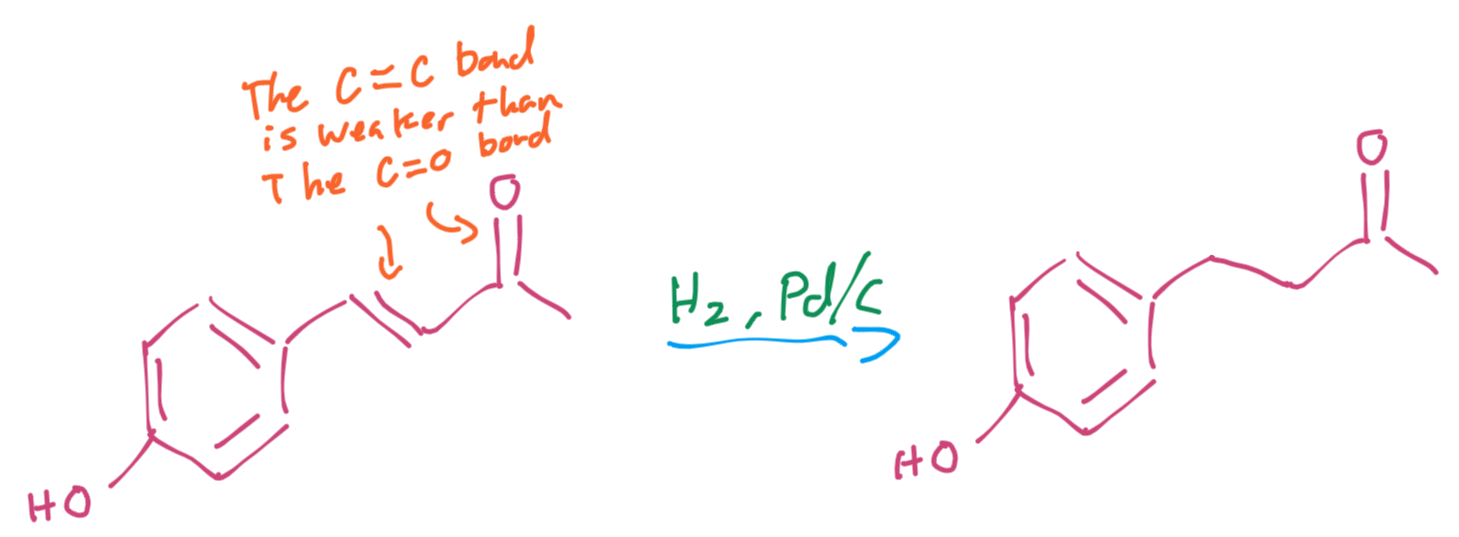 The C=C bond
is weaker than
The C=O bond
O
HO
H2, Pd/C
O
HO